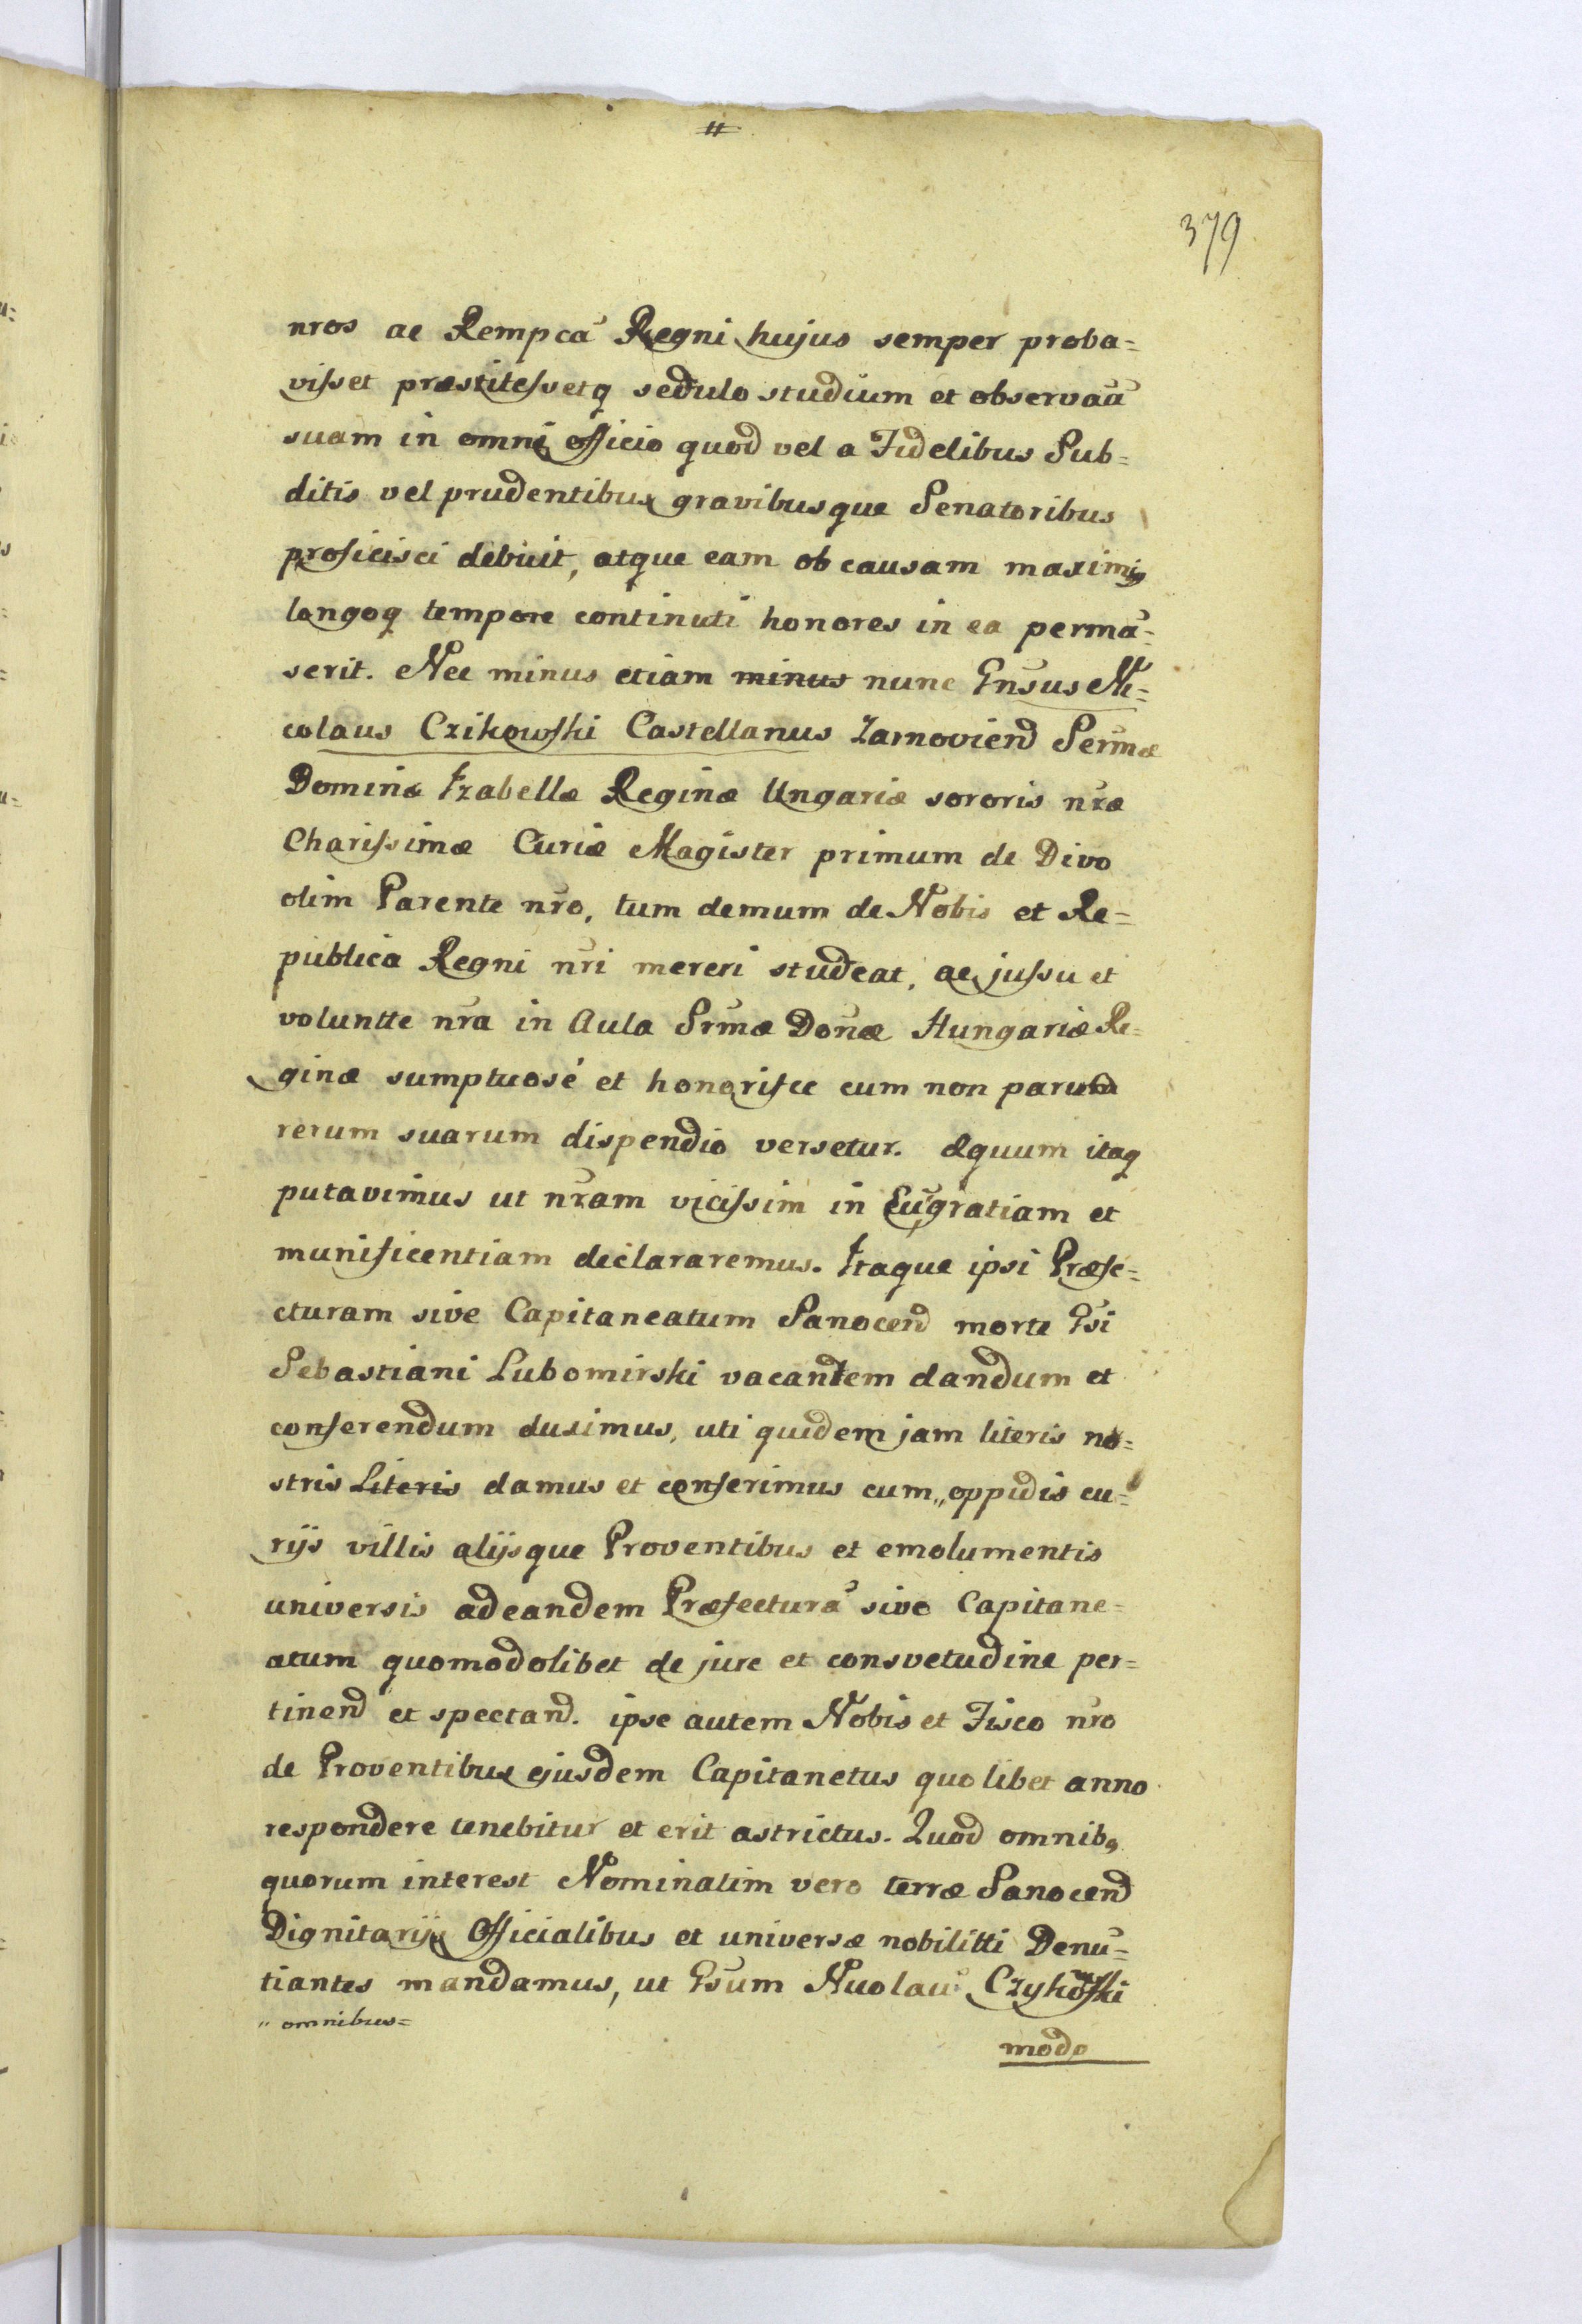 #
379
nros ac Rempcã Regni hujus semper proba=
visset præstitessetq sedulo studium et observaã
suam in omni officio quod vel a Fidelibus Sub=
ditis vel prudentibus gravibusque Senatoribus
proficisci debuit, atque eam ob causam maximis
longoq tempore continuti honores in ea permã=
serit. Nec minus etiam minus nunc Gnsus Ni=
colaus Czikowski Castellanus Zarnoviend Sermæ
Dominæ Izabellæ Reginæ Ungariæ sororis nræ
Charissimæ Curiæ Magister primum de Divo
olim Parente nro, tum demum de Nobis et Re=
publica Regni nri mereri studeat, ac jussu et
voluntte nra in Aula Srmæ Donæ Hungariæ Re=
ginæ sumptuosé et honorifce cum non parum
rerum suarum dispendio versetur. Æquum itaq
putavimus ut nram vicissim in Eũ gratiam et
munificentiam declararemus. Itaque ipsi Præfe=
cturam sive Capitaneatum Sanocend morte Gsi
Sebastiani Lubomirski vacantem dandum et
conferendum duximus, uti quidem jam literis no=
stris Literis damus et conferimus cum„ oppidis cu=
rijs villis alijsque Proventibus et emolumentis
universis ad eandem Præfecturã sive Capitane=
atum quomodolibet de jure et consvetudine per=
tinend et spectand. ipse autem Nobis et Fisco nro
de Proventibus ejusdem Capitanetus quolibet anno
respondere tenebitur et erit astrictus. Quod omnibq
quorum interest Nominatim vero terræ Sanocend
Dignitarijs Officialibus et universæ nobilitti Denũ=
tiantes mandamus, ut Gsum Nicolaũ Czykowski
„ omnibus=
modo